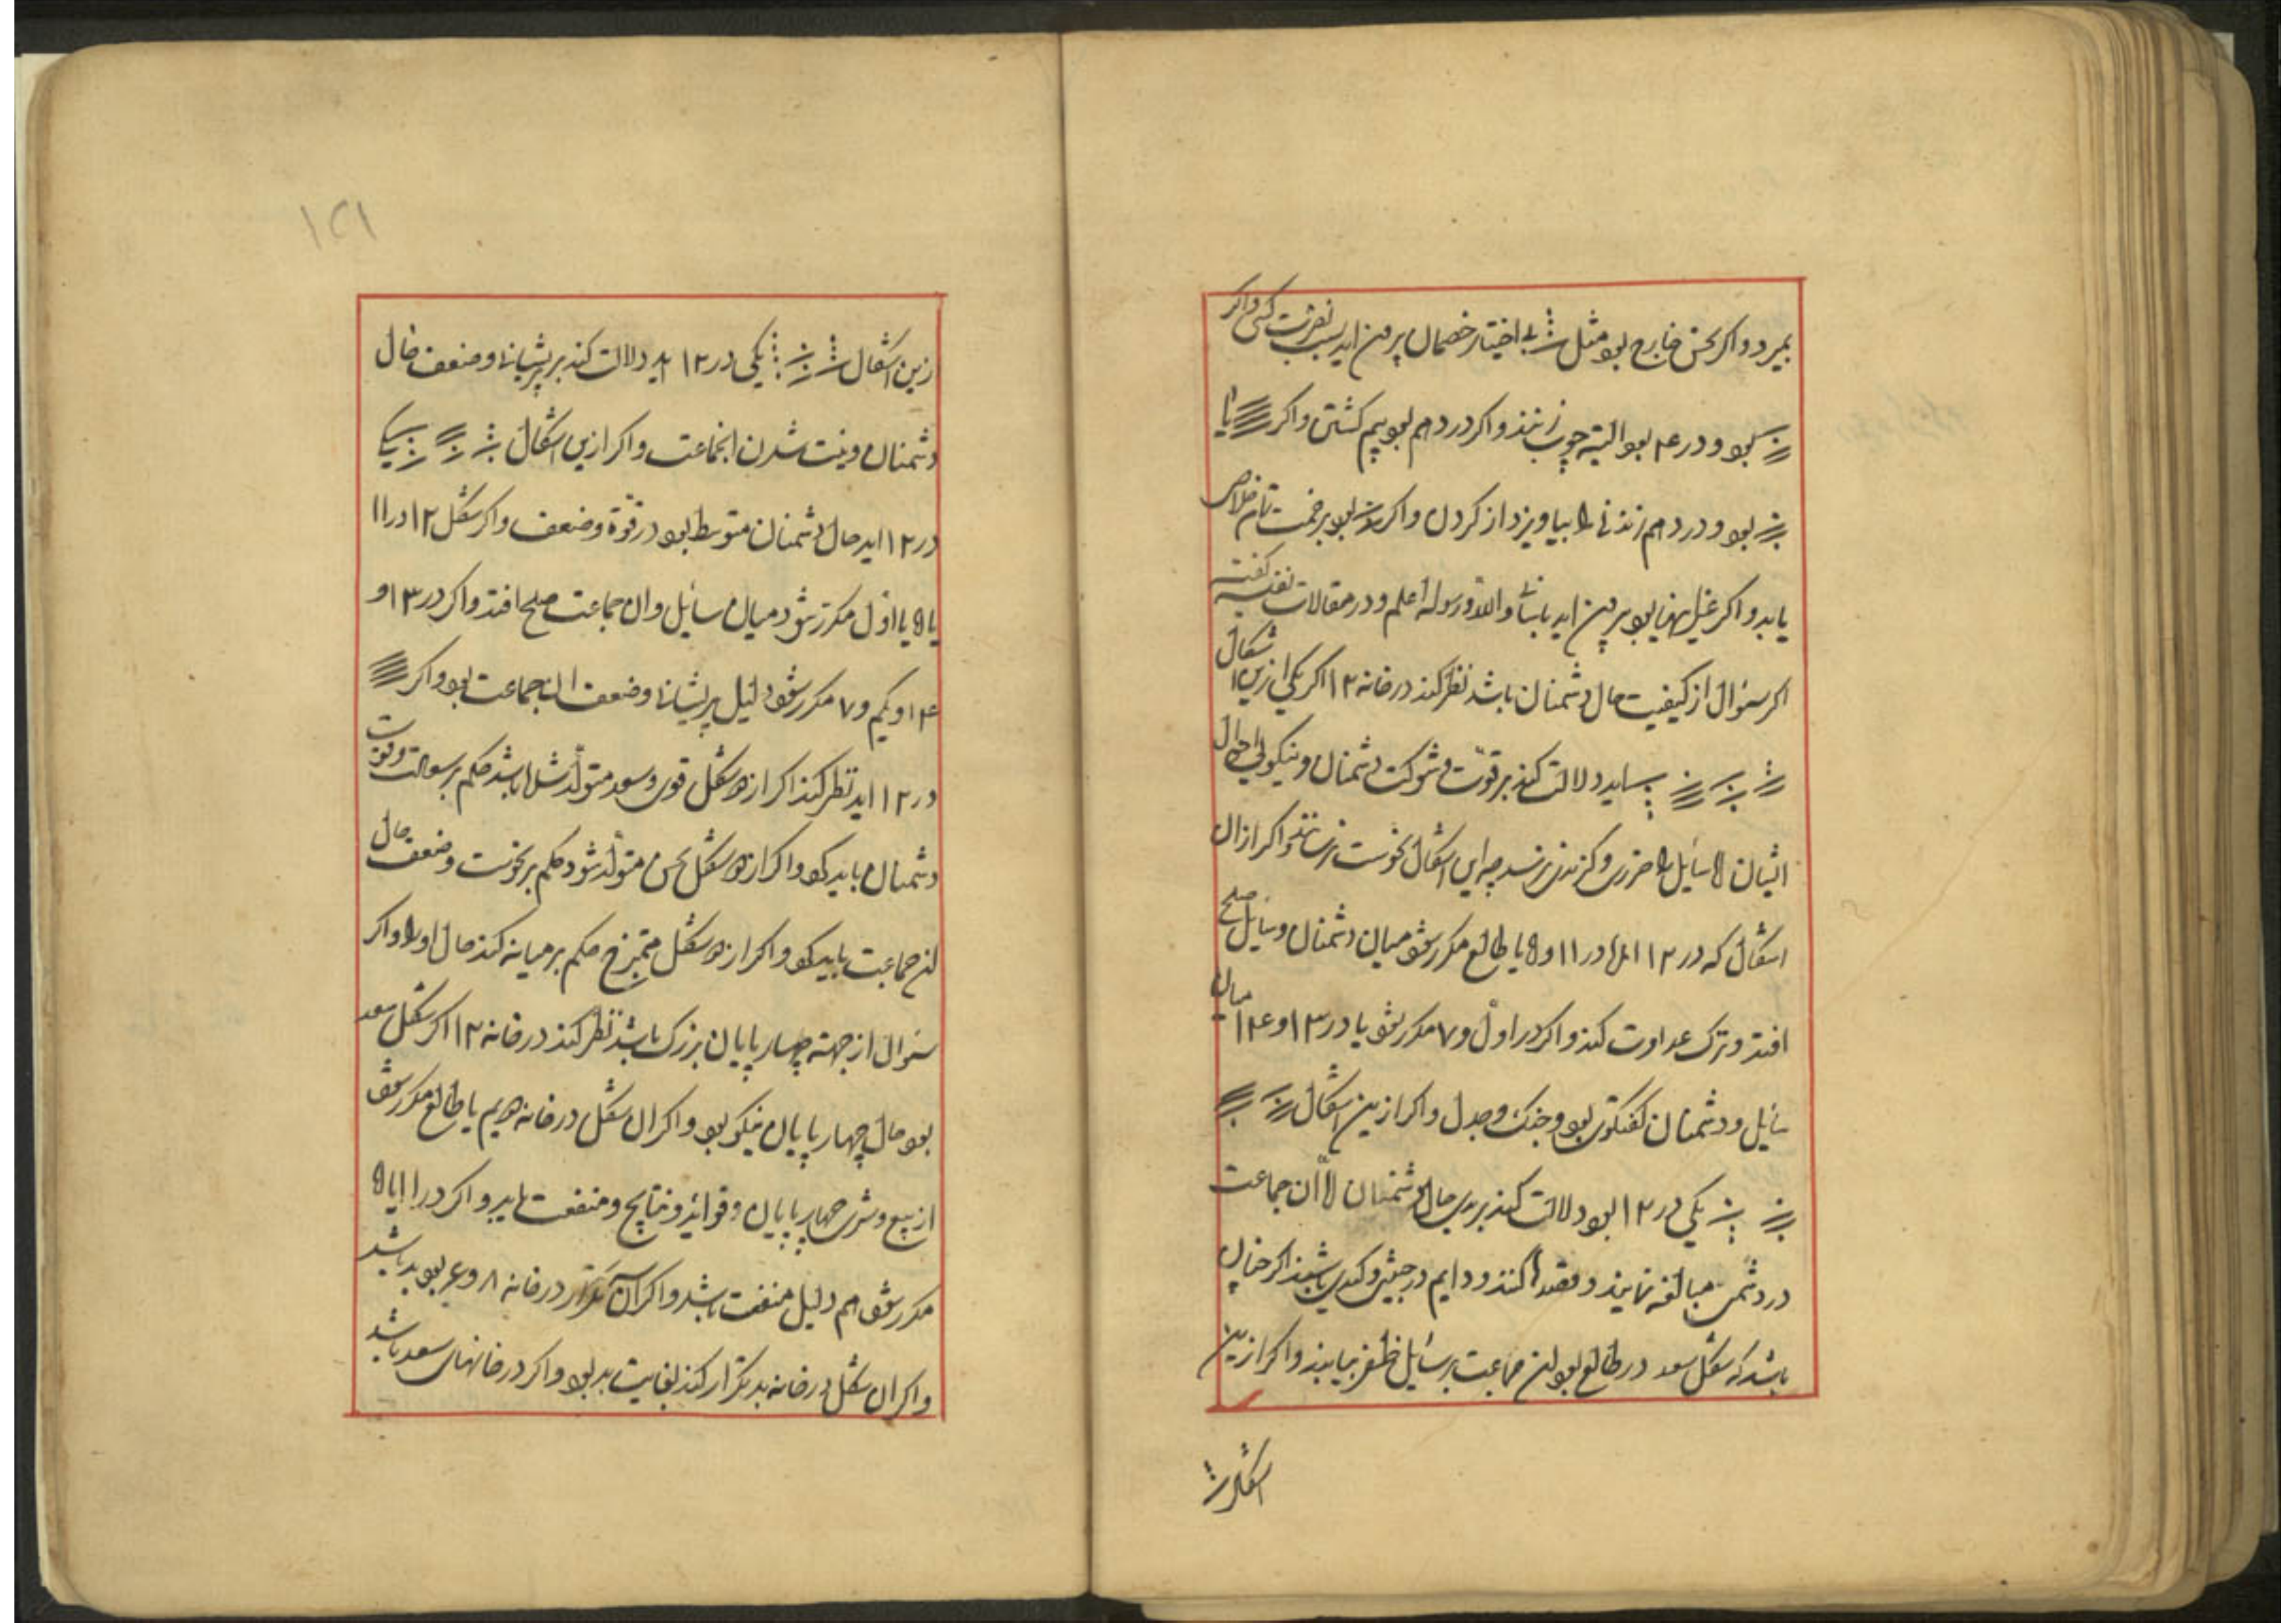 بمیرد و اکر نحس خارج بود مثل بی اختیار خصمان بیرون اید بسبب نصرت کسی و اکر
بود و در ۴ بود البته چوب زنند و اکر در دهم بود بیم کشتن و اکر یا
بود و در دهم زند تا بیاویزد از کردن و اکر بود بزخمت تان خلاص
یابد و اکر بود بیرون اید والله و رسوله اعلم و در مقالات نغیسه کفته
اکر سؤال از کیفیت حال دشمنان باشد نظر کند در خانه ۱۲ اکر یکی ازین اشکال
اید دلالت کند بر قوت و شوکت دشمنان و نیکوئی احوال
ایشان اما سایل را ضرری و کزندی نرسد چه این اشکال نحوست نرسانند و اکر ازان
اشکال که در ۱۲ امد در ۱۱ و ۵ یا طالع مکرر شود میان دشمنان و سایل صلح
افتد و ترک عداوت کند و اکر در اول و ۷ مکرر شود یا در ۱۳ و ۱۴ میان
سایل و دشمنان کفتکوی بود و جنک و جدل و اکر ازین اشکال
یکی در ۱۲ بود دلالت کند بر بدی حال دشمنان اما ان جماعت
در دشمنی مبالغه نمایند و قصدها کنند و دایم در باشند اکر چنان
باشد که شکل سعد در طالع بود ان جماعت بر سایل ظفر نیابند و اکر ازین
اشکال
۱۲۱
ازین اشکال یکی در ۱۲ اید دلالت کند بر پریشانی و ضعف حال
دشمنان و نیست شدن انجماعت و اکر ازین اشکال یکی
در ۱۲ اید حال دشمنان متوسط بود در قوة و ضعف و اکر شکل ۱۲ در ۱۱
یا ۵ یا اول مکرر شود میان سایل و ان جماعت صلح افتد و اکر در ۱۳ و
۱۴ و یکم و ۷ مکرر شود دلیل پریشانی و ضعف ان جماعت بود و اکر
در ۱۲ اید نظر کند اکر از دو شکل قوی و سعد متولد شده باشد حکم بر سعادت و قوت
دشمنان باید کرد و اکر از دو شکل نحس متولد شود حکم بر نحوست و ضعف حال
ان جماعت باید کرد و اکر از دو شکل ممتزج حکم بر میانه کند حال او را و اکر
سؤال از جهته چهار پایان بزرک باشد نظر کند در خانه ۱۲ اکر شکل سعد
بود حال چهار پایان نیکو بود و اکر ان شکل در خانه دویم یا طالع مکرر شود
از بیع و شری چهار پایان و فواید و نتایج و منفعت یابد و اکر در ۱۱ یا ۵
مکرر شود هم دلیل منفعت باشد و اکر ان تکرار در خانه ۸ و ۶ بود بد باشد
و اکر ان شکل در خانه بد تکرار کند بغایت بد بود و اکر در خانهای سعد باشد